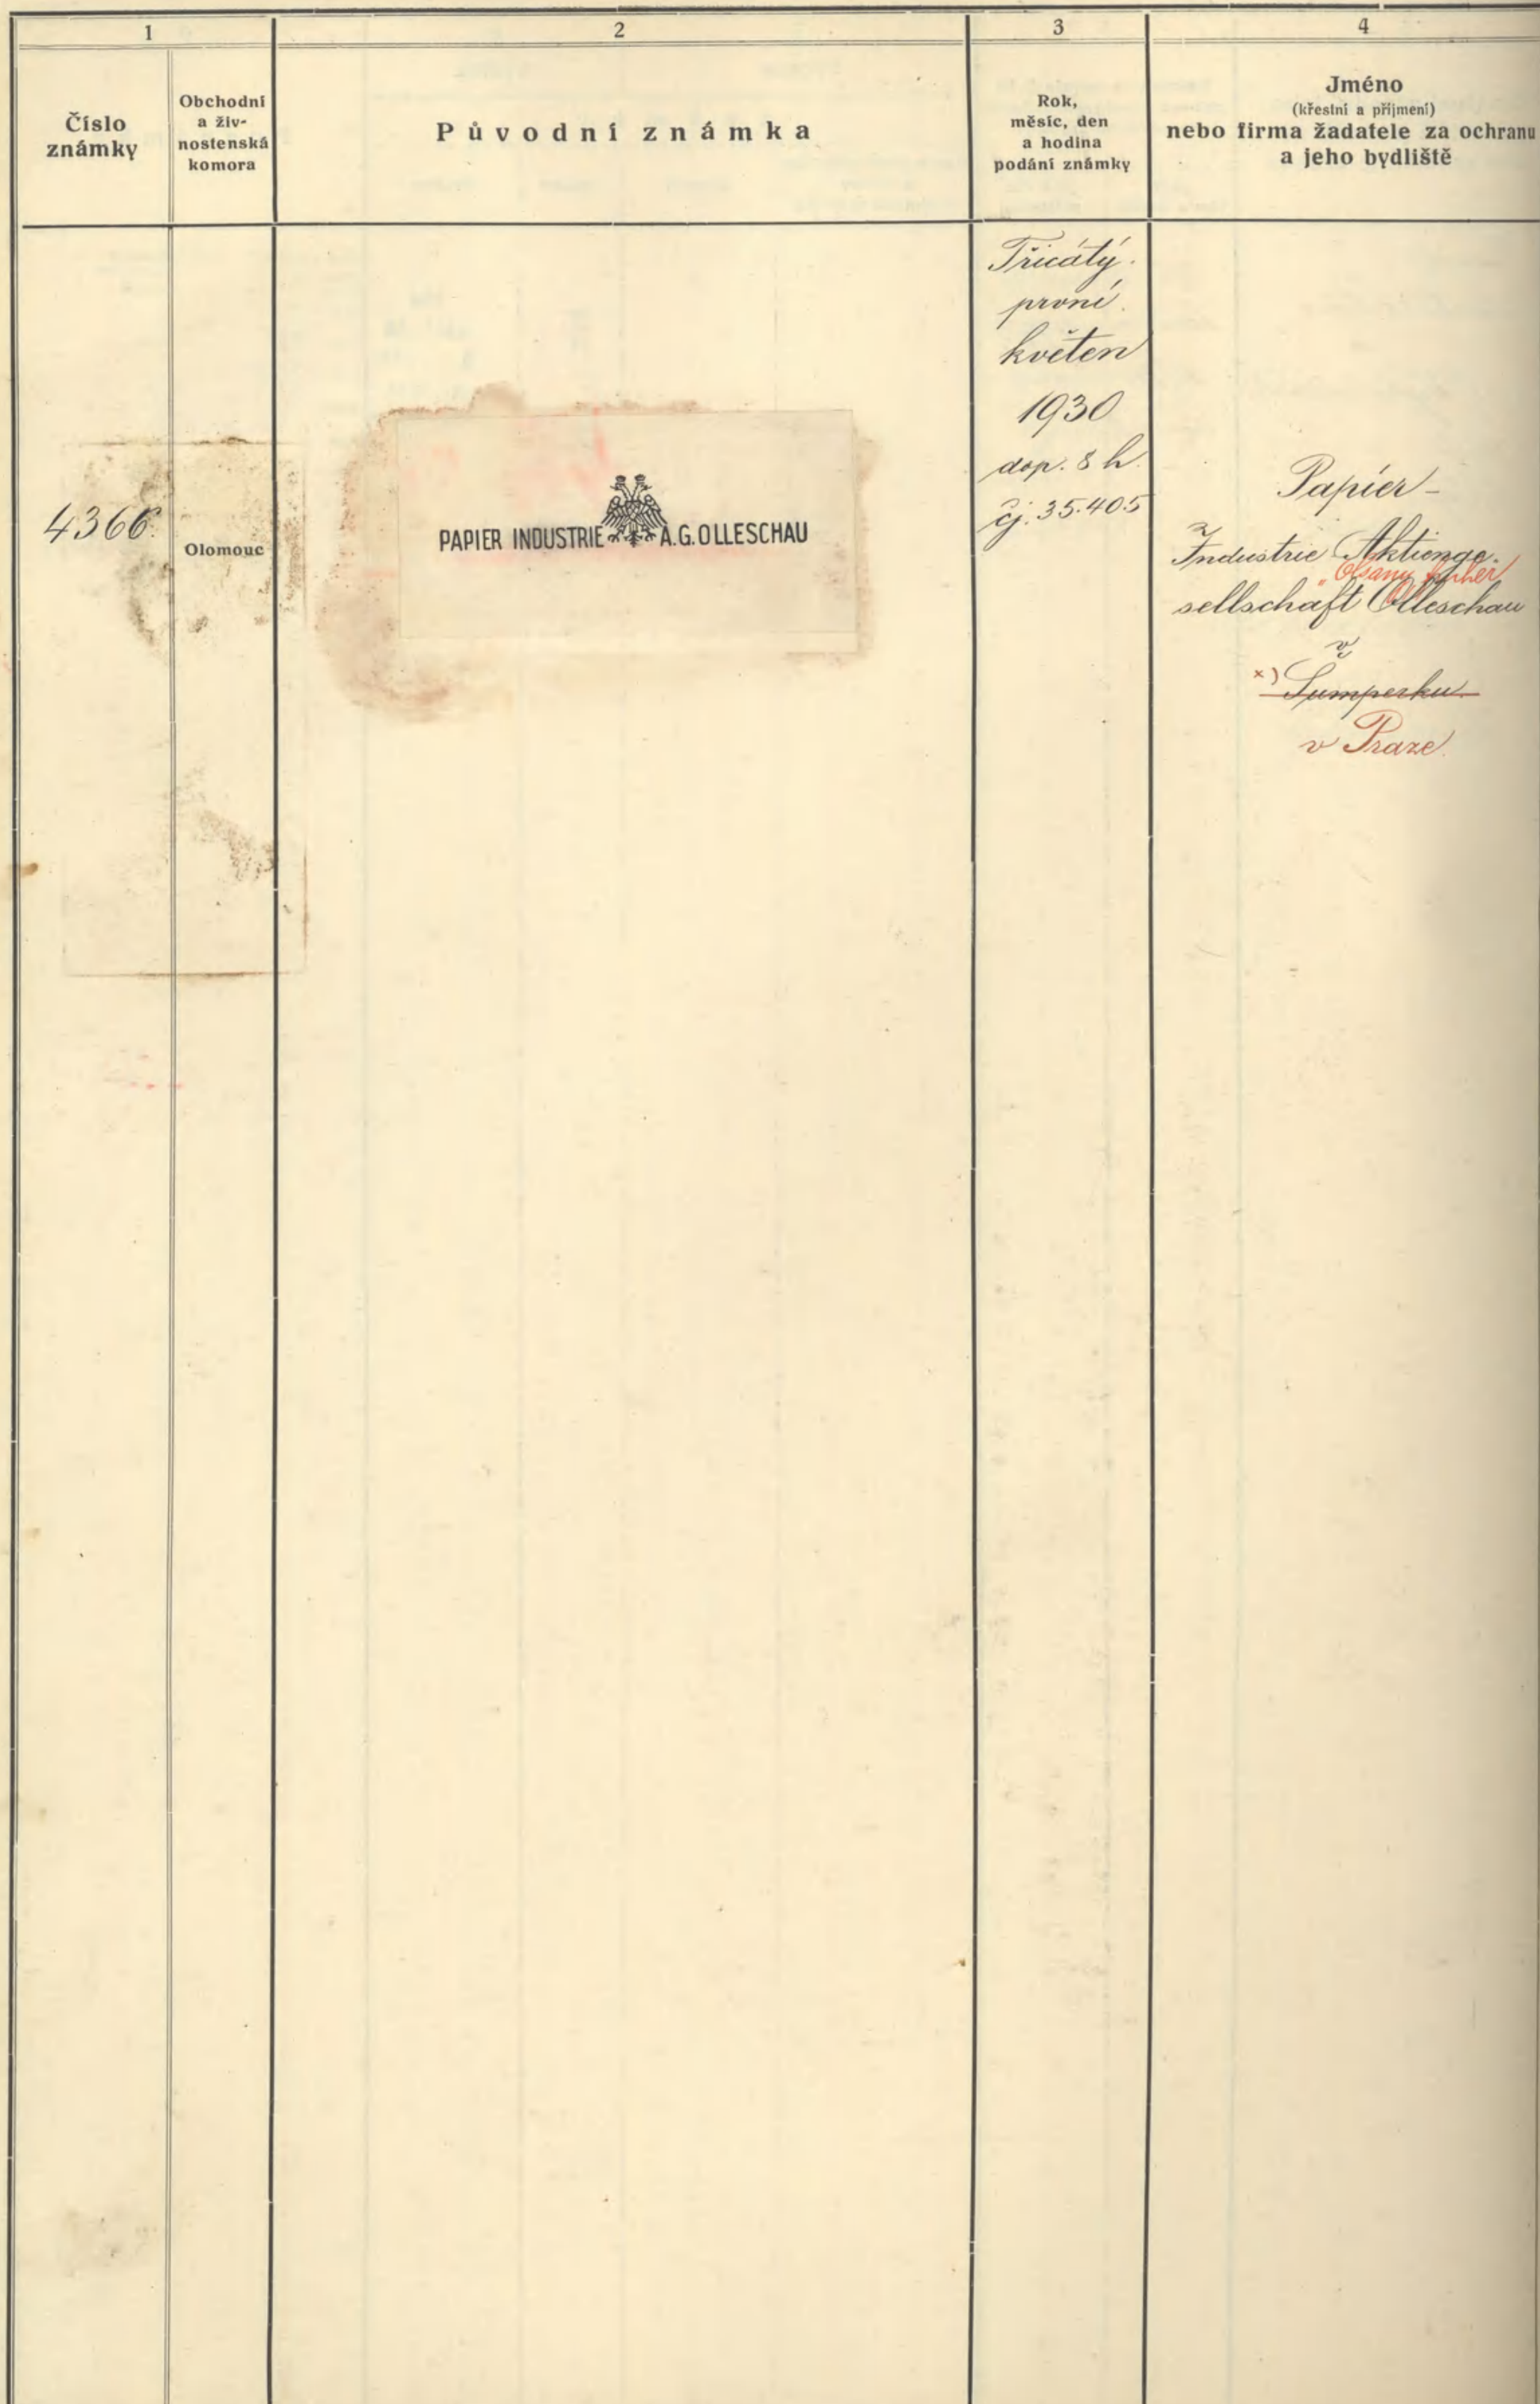 1
2
3
4
Číslo
známky
Obchodní
a živ-
nostenská
komora
Původní známka
Rok,
měsíc, den
a hodina
podání známky
Jméno
(křestní a příjmení)
nebo firma žadatele za ochranu
a jeho bydliště
4366.
Olomouc
PAPIER INDUSTRIE A.G. OLLESCHAU
Třicátý
první
květen
1930
dop. 8 h.
čj. 35.405
Papier-
Industrie Aktienge-
"Olšany
sellschaft Olleschau
v
x) Šumperku
v Praze.